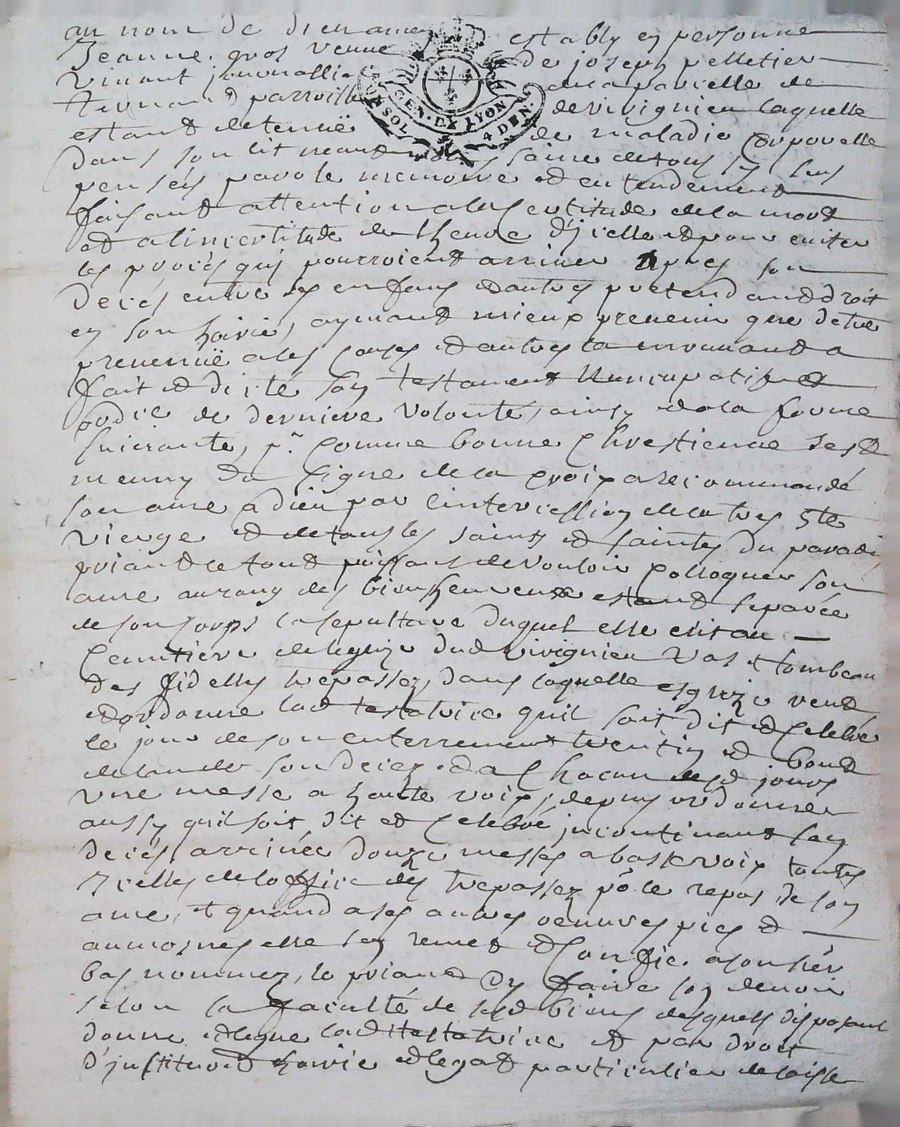 au nom de dieu amen establÿ en personne
Jeanne gros veuve de joseph pelletier
vivant journallie de la parcelle de
parroisse de virignieu laquelle
estant detenuë de maladie corporelle
dans son lit neant saine de tous ses sens
pensées parole memoire et entendement
faisant attention a la certitude de la mort
et a lincertitude de lheure d'jcelle et pour eviter
les procès quj pourroient arriver apres son
decés entre ses enfans et autres pretendant droit
en son hairie, aymant mieux prevenir que detre
prevenuë a ces causes et autres la mouvant a
fait et dicté son testament nuncupatif et
ordce de derniere volonté, ainsy et de la forme
suivante, pr. comme bonne Chrestienne sest
meuny du signe de la croix a recommandé
son ame a dieu par lintercession de la tres Ste
vierge et de tous les saints et saintes du paradi
priant le tout puissant de vouloir colloquer son
ame au rang des bienheureux estant separée
de son corps la sepulture duquel elle elit au
Cemetiere de legize dud virignieu vas et tombeau
des fidelles trepassez, dans laquelle esglize veut
et ordonne lad testatrice quil soit dit et Celebré
le jour de son enterrement trentin et bout
de lan de son decez et a Chacun desd jours
une messe a haute voix, de plus ordonne
aussy quil soit dit et Celebré jncontinant son
decés arrivée douze messes a basse voix toutes
jcelles de loffice des trepassez po le repos de son
ame, et quand a ses autres oeuvres pies et
aumosnes elle sen remet et Confie a son hér
bas nommez, le priant d'y faire son devoir
selon la faculté de sesd biens desquels disposant
donne et legue lad testatrice et par droit
d'jnstitution hairie et legat particulier delaisse
GEN. DE LYON
SOL 4 DEN.